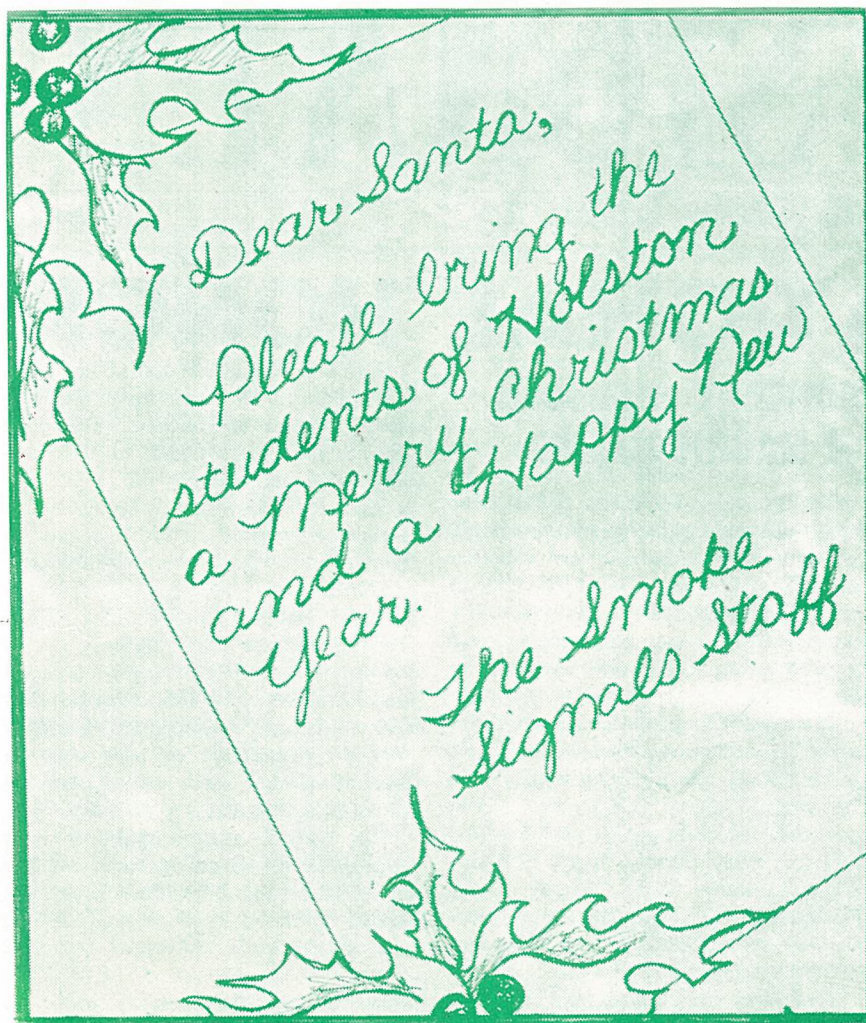 Dear Santa,
Please bring the
students of Holston
a Merry Christmas
and a Happy New
Year.
The Smoke
Signals Staff